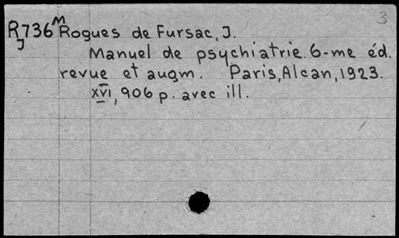 3
R736M Rogues de Fursac, J.
J
Manuel de psychiatrie. 6-me éd.
revue et augm. Paris, Alcan, 1923.
XVI, 906 p. avec ill.